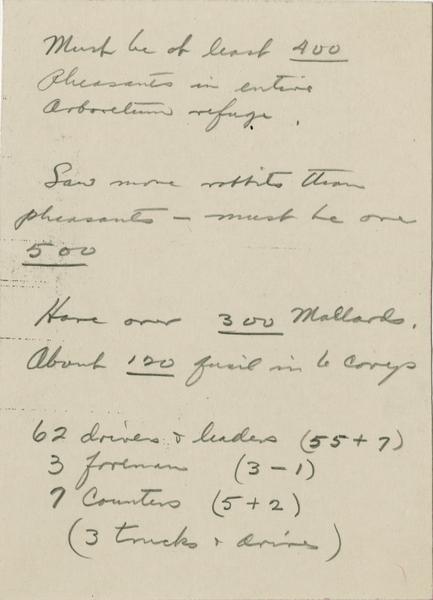 Must be at least 400
pheasants in entire
Arboretum refuge.
Saw more rabbits than
pheasants – must be over
500
Have over 300 Mallards.
About 120 quail in 6 coveys
62 drivers & leaders (55 + 7)
3 foreman (3 – 1)
7 Counters (5 + 2)
(3 trucks & drivers)